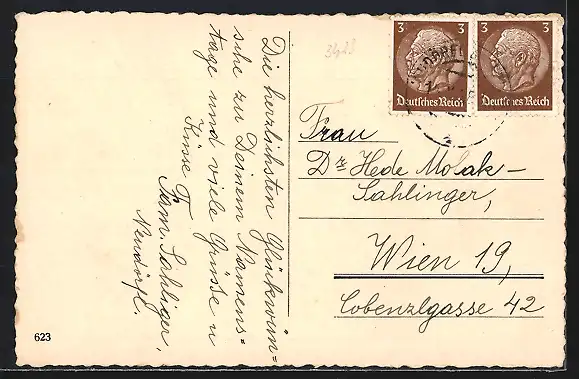 Die herzlichsten Glückwün=
sche zu Deinem Namens=
tage und viele Grüsse u
Küsse
Fam. Sahlinger,
Neudörfl.
3 3
Deutsches Reich Deutsches Reich
Frau
Dr Hede Molak-
Sahlinger,
Wien 19,
Cobenzlgasse 42
623